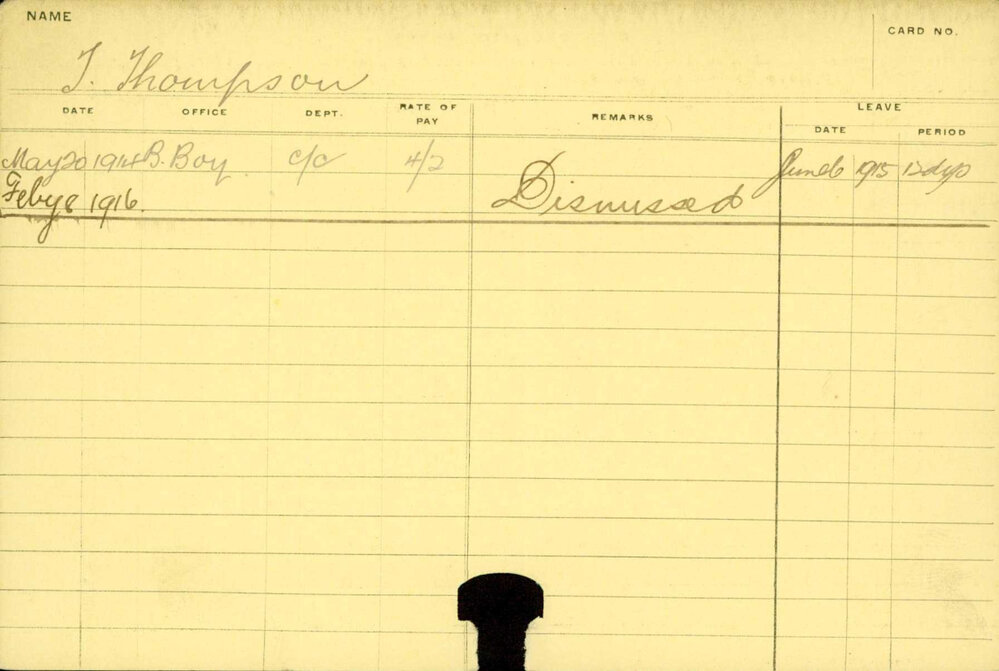 NAME
CARD NO.
T. Thompson
DATE OFFICE DEPT. RATE OF PAY REMARKS LEAVE
DATE PERIOD
May 20 1914 B. Boy c/c 4/2 June 6 1915 12 dys
Feby 8 1916. Dismissed